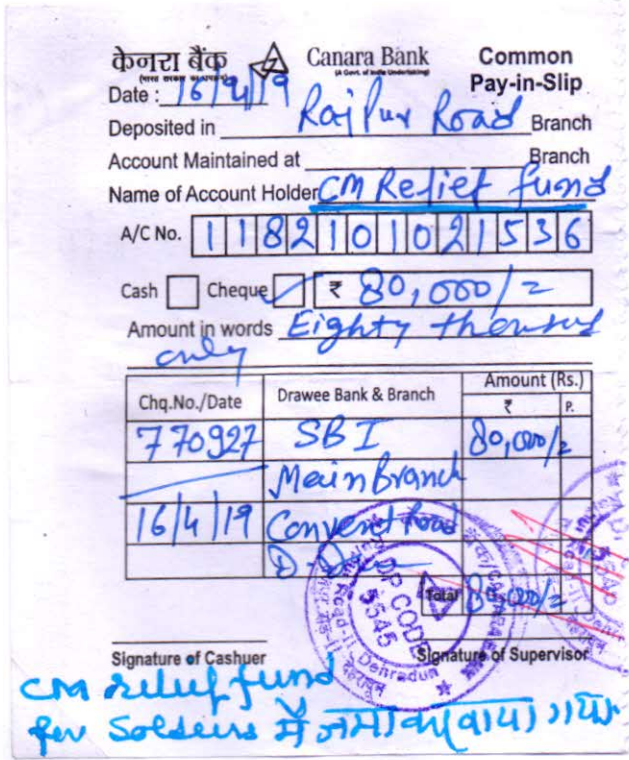 केनरा बैंक Canara Bank Common
(भारत सरकार का उपक्रम) (A Govt. of India Undertaking) Pay-in-Slip
Date : 16/4/19
Deposited in Rajpur Road Branch
Account Maintained at Branch
Name of Account Holder CM Relief fund
A/C No. 1182101021536
Cash Cheque ₹ 80,000/=
Amount in words Eighty thousand
only
Chq.No./Date Drawee Bank & Branch Amount (Rs.)
₹ P.
770927 SBI 80,000/=
Main Branch
16/4/19 Convent Road
D.Dun
Total 80,000/=
DP CODE
5545
Road-II Dehradun
Signature of Cashuer Signature of Supervisor
CM relief fund
for Soldiers में जमा करवाया गया